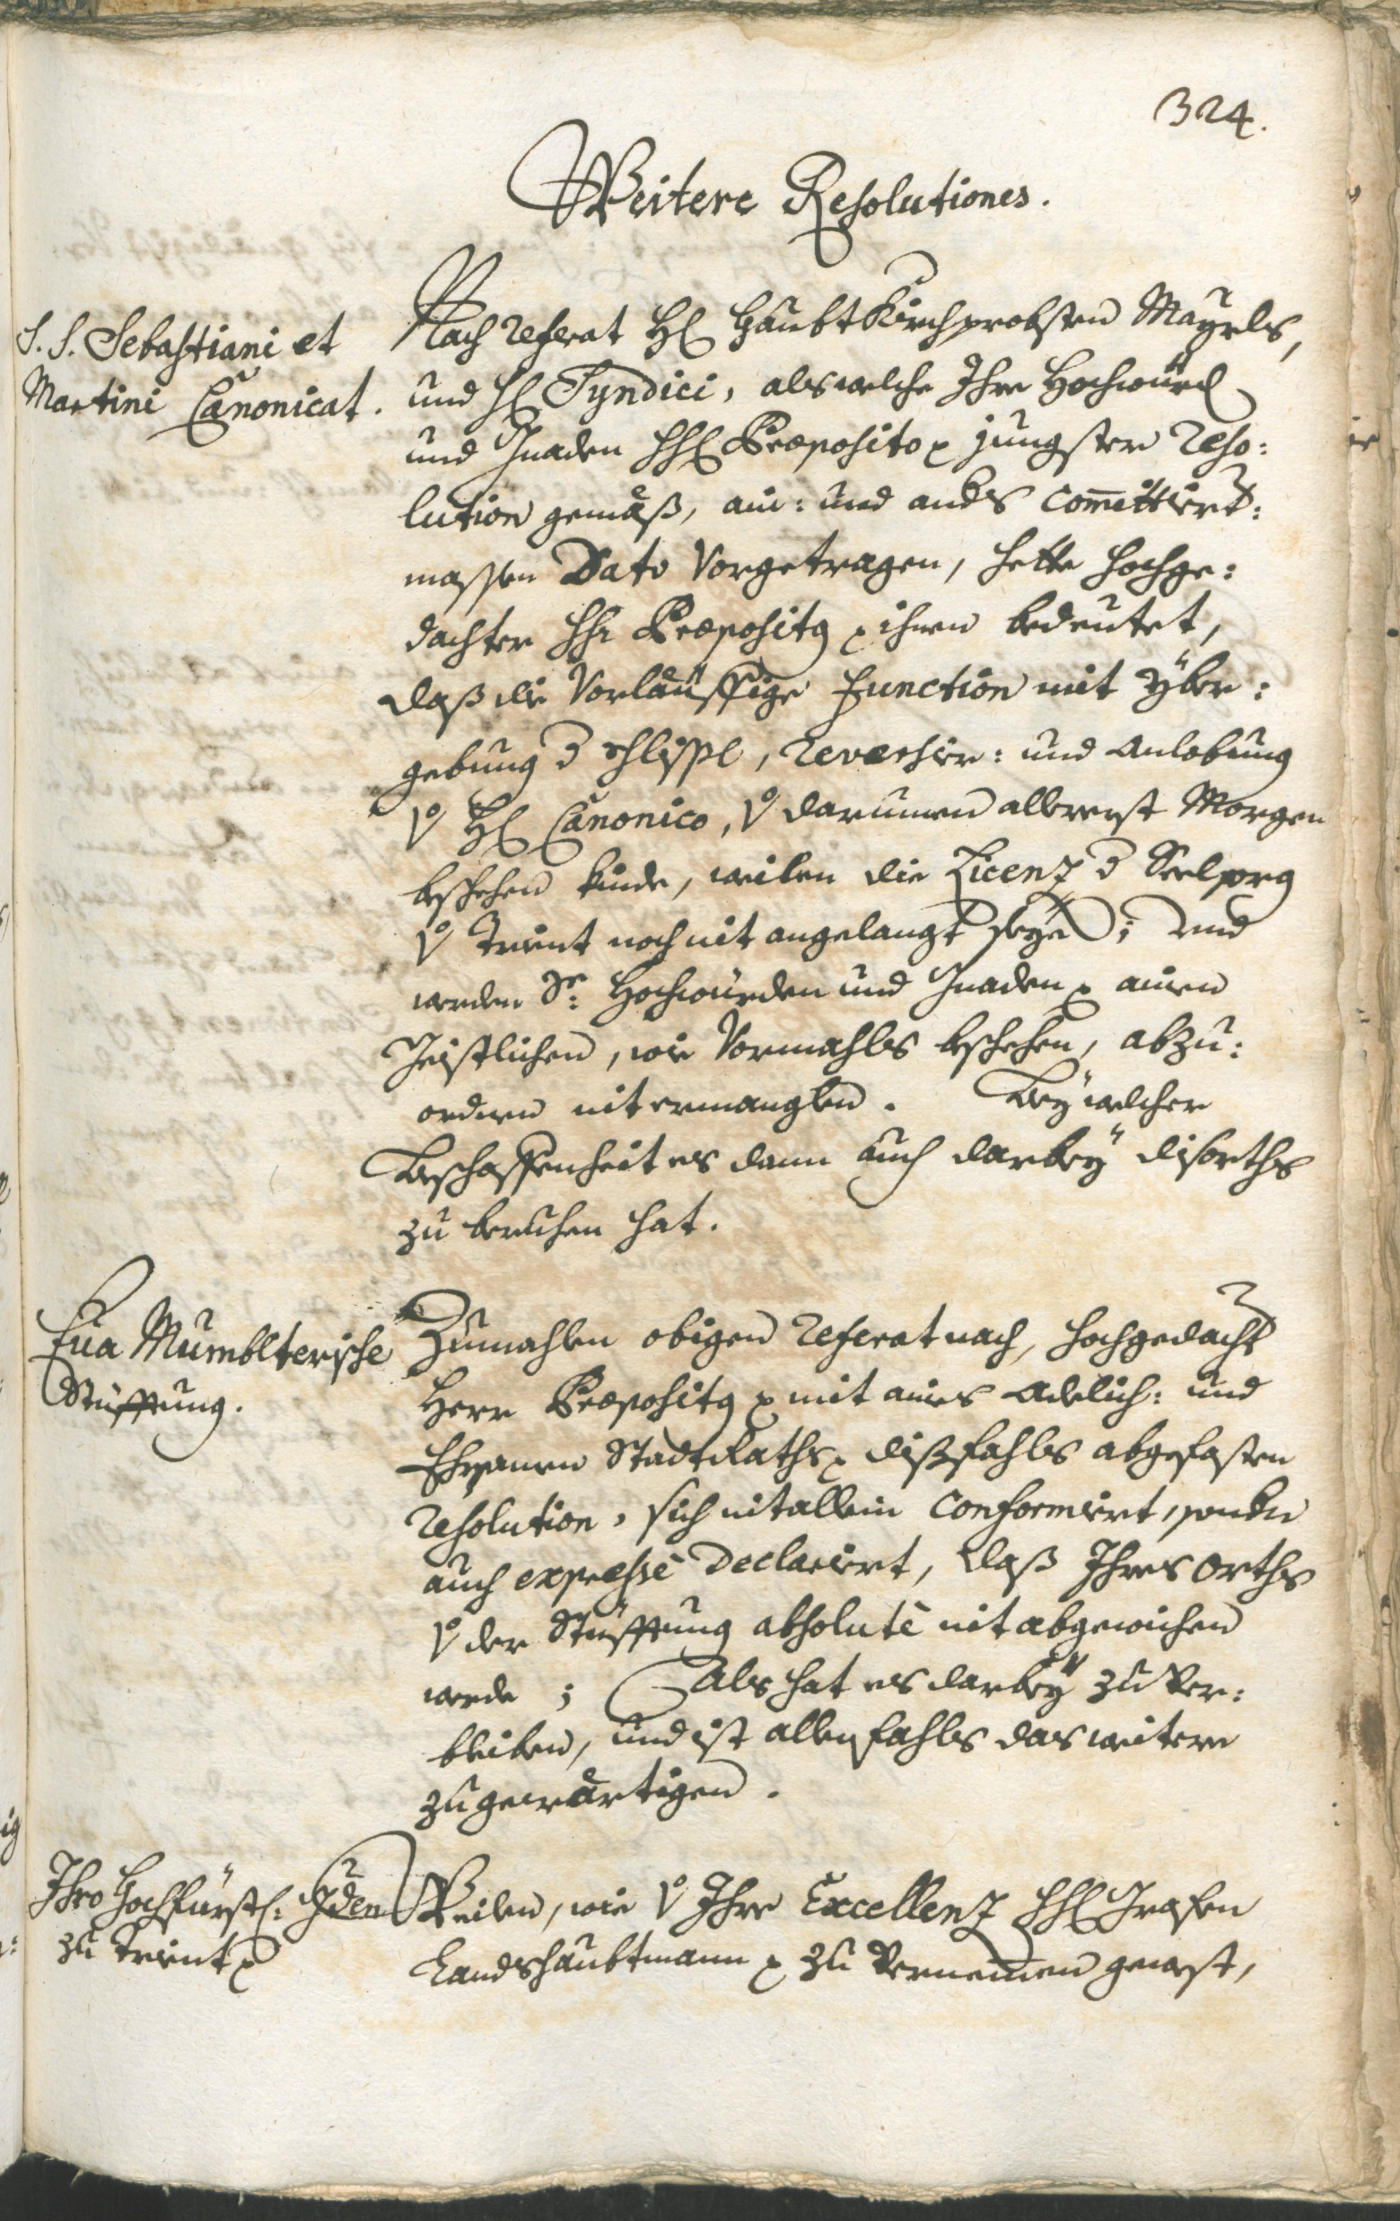 324.
Weitere Resolutiones.
S. S. Sebastiani et
Martini Canonicat.
Nach referat H: Haubt Kirchprobsten Mayrls,
und H: Syndici, als welche Ihre Hochwürd
und Gnaden HH: Præposito jungster reso:
lution gemäß, ain: und anders com̄ittirt:
massen Dato Vorgetragen, hette hochge:
dachter HH: Præpositus ihnen bedeutet,
daß die Vorläuffige function mit Yber:
gebung d Schlissl, reversir: und Anlobung
v H: Canonico, v darumen allererst Morgen
beschehen kinde, weilen die Licenz d Seelsorg
v Trient noch nit angelangt seye; und
werden Sr: Hochwürden und Gnaden ainen
Geistlichen, wie Vormahls beschehen, abzu:
ordnen nit ermanglen. Bey welcher
Beschaffenheit es dann auch darbey disorths
zu beruhen hat.
Eua Mumblterische
Stüfftung.
Zumahlen obigen referat nach, hochgedacht
Herr Præpositus mit aines Adelich: und
Ehrsamen Stadt Raths dißfahls abgefasten
resolution, sich nit allein conformirt, sonder
auch expresse declarirt, daß Ihres orths
v der Stüfftung absolutè nit abgewichen
werde; Als hat es darbey zu ver:
bleiben, und ist allenfahls das weitere
zugewärtigen.
Ihro Hochfürstl: Gden
zu Trient
Weilen, wie v Ihre Excellenz HH: Grafen
Landshaubtmann zu vernemen gewest,